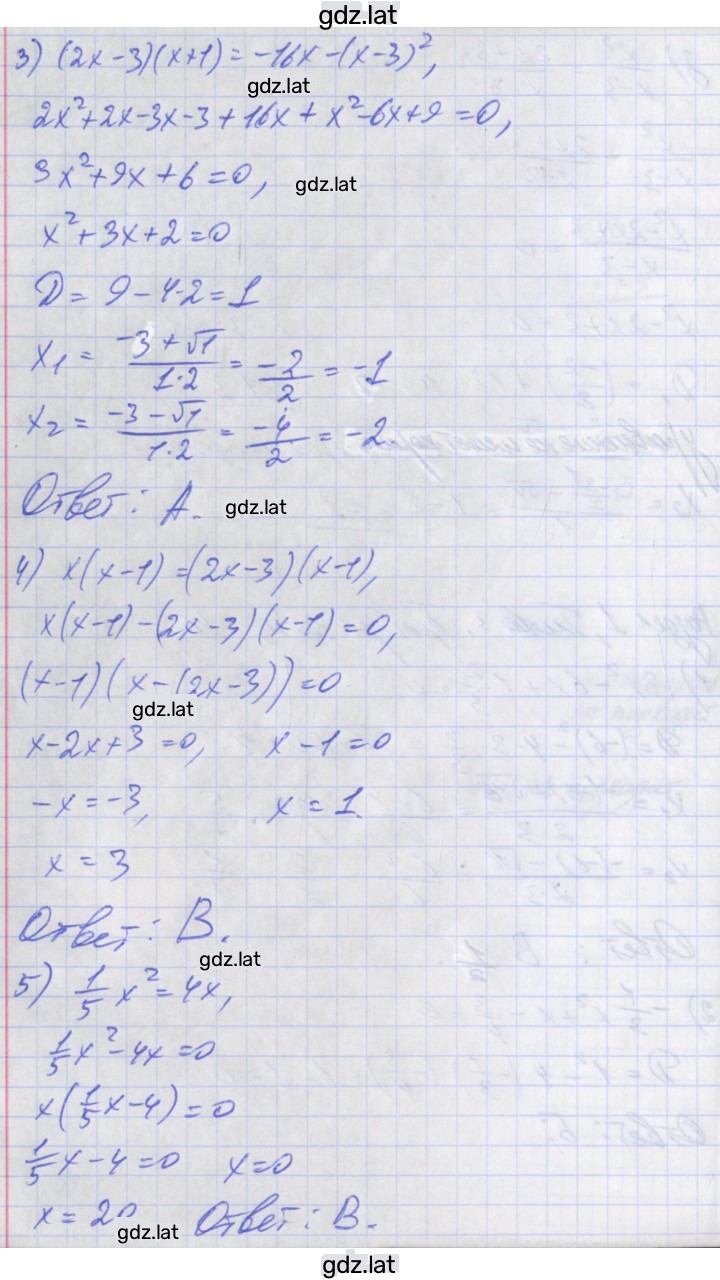 gdz.lat
3) (2x-3)(x+1) = -16x-(x-3)²,
gdz.lat
2x²+2x-3x-3+16x+x²-6x+9=0,
3x²+9x+6=0,
gdz.lat
x²+3x+2=0
D=9-4·2=1
x₁ = (-3+√1)/(1·2) = -2/2 = -1
x₂ = (-3-√1)/(1·2) = -4/2 = -2.
Ответ: А.
gdz.lat
4) x(x-1)=(2x-3)(x-1),
x(x-1)-(2x-3)(x-1)=0,
(x-1)(x-(2x-3))=0
gdz.lat
x-2x+3=0, x-1=0
-x=-3, x=1.
x=3
Ответ: В.
gdz.lat
5) 1/5 x²=4x,
1/5 x²-4x=0
x(1/5 x-4)=0
1/5 x-4=0 x=0
x=20 Ответ: В.
gdz.lat
gdz.lat